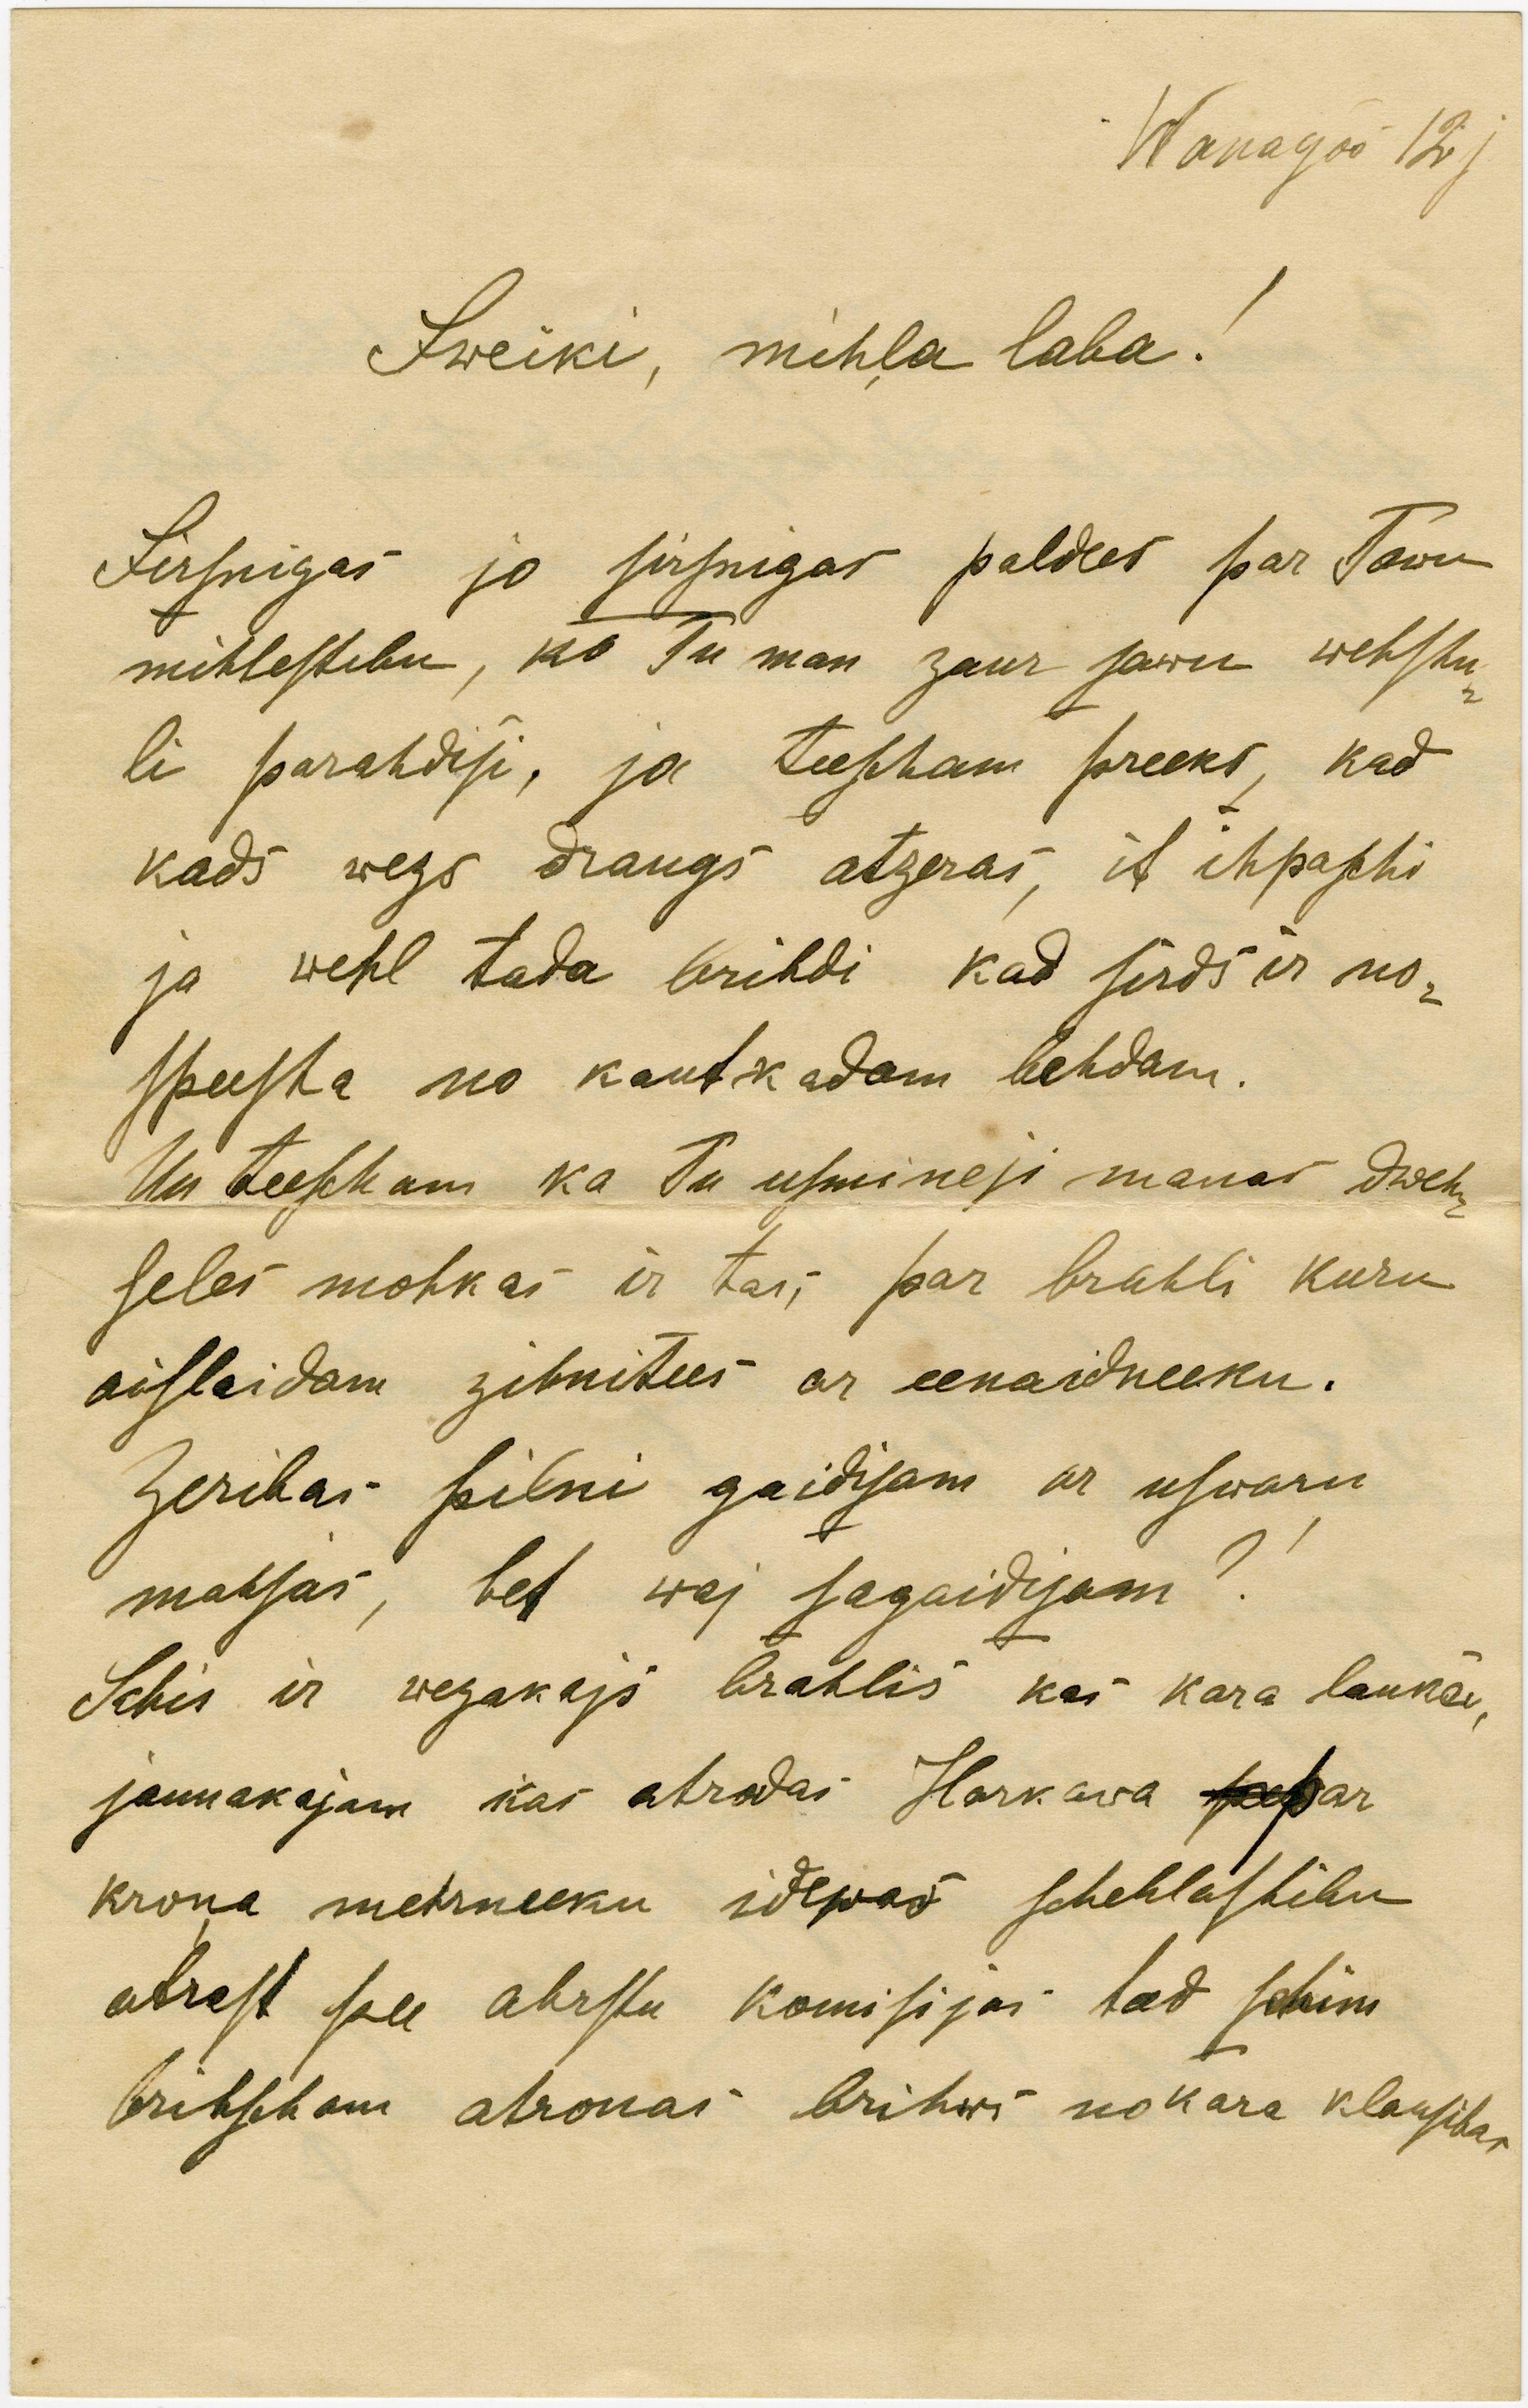 Wanagôs 12 j
Sweiki, mihļa laba!
Sirsnigas jo sirsnigas paldees par Tawu
mihlestibu, ko Tu man zaur sawu wehstu-
li parahdiji, ja teescham preeks, kad
kads wezs draugs atzeras, it ihpaschi
ja wehl tada brihdi kad sirds ir no-
speesta no kautkadam behdam.
Un teescham ka Tu usmineji manas dweh-
seles mohkas ir tas, par brahli kuru
aislaidam zihnitees ar eenaidneeku.
Zeribas pilni gaidisam ar uswaru
mahjas, bet waj sagaidisam?!
Schis ir wezakajs brahlis kas kara laukâ,
jaunakajam kas atrodas Harkawa par
kroņa mehrneeku idewas schehlastibu
atrast pee ahrstu komisijas tad schim
brihscham atronas brihws no kara klausibas